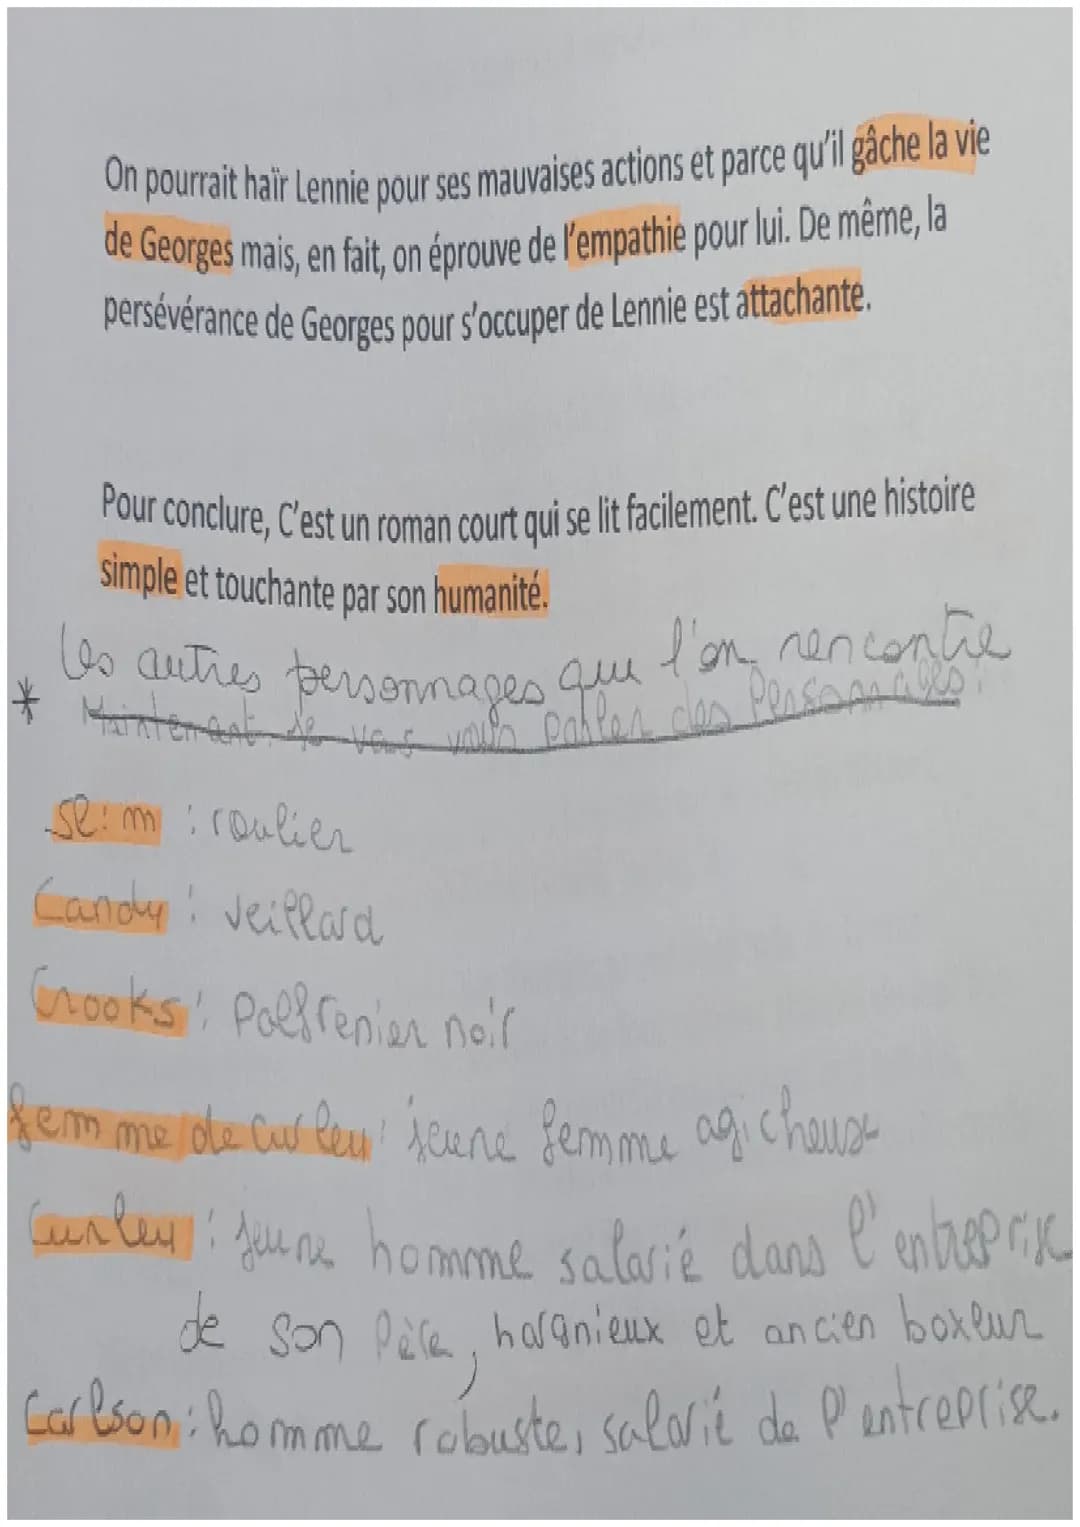 On pourrait haïr Lennie pour ses mauvaises actions et parce qu'il gâche la vie
de Georges mais, en fait, on éprouve de l'empathie pour lui. De même, la
persévérance de Georges pour s'occuper de Lennie est attachante.
Pour conclure, C'est un roman court qui se lit facilement. C'est une histoire
simple et touchante par son humanité.
les autres personnages que l'on rencontre
* Maintenant je vais vous parler des Personnages:
Slim : roulier
Candy : veillard
Crooks : Palfrenier noir
femme de Curley : jeune femme agicheuse
Curley : jeune homme salarié dans l'entreprise
de son Père, hargnieux et ancien boxeur
Carlson : homme robuste, salarié de l'entreprise.